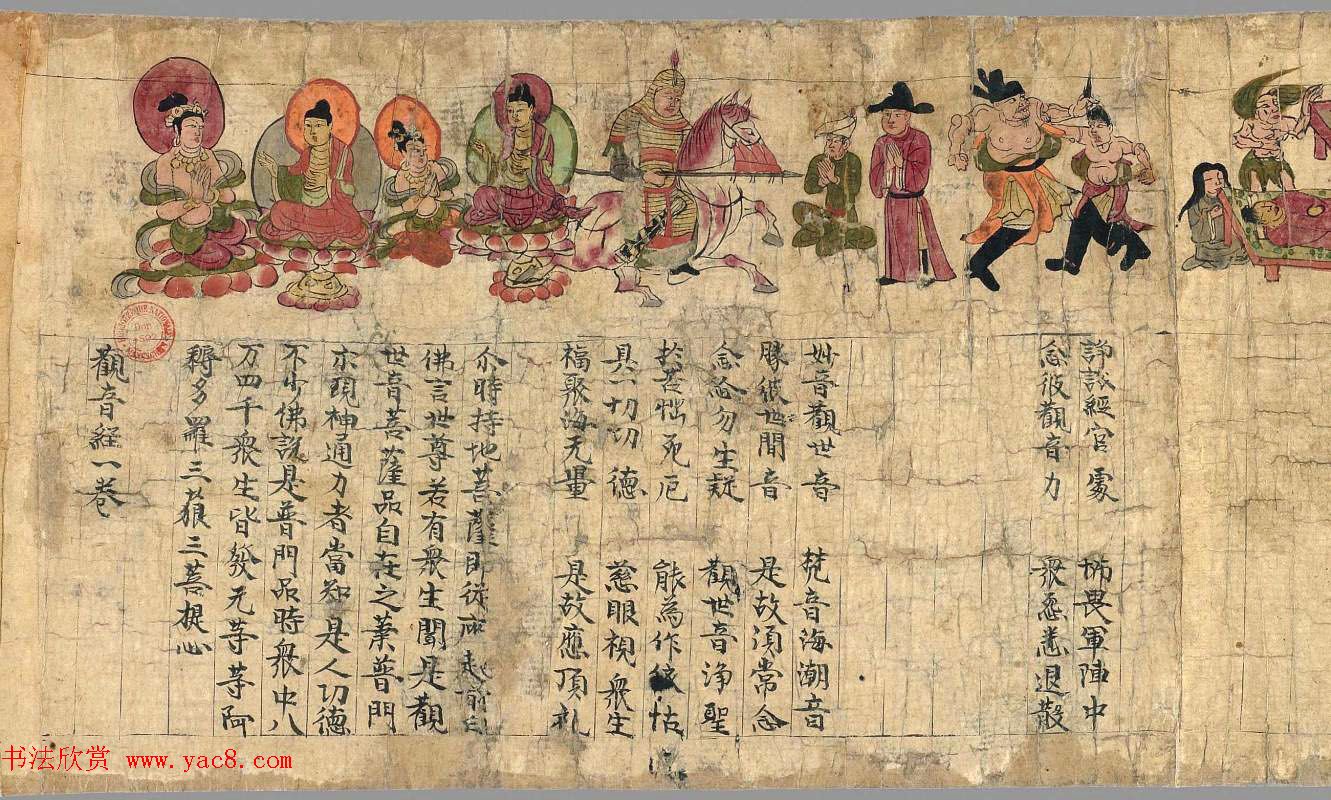 諍訟經官處 怖畏軍陣中
念彼觀音力 衆怨悉退散
妙音觀世音 梵音海潮音
勝彼世間音 是故須常念
念念勿生疑 觀世音淨聖
於苦惱死厄 能為作依怙
具一切功德 慈眼視衆生
福聚海无量 是故應頂礼
尒時持地菩薩即從座起前白
佛言世尊若有衆生聞是觀
世音菩薩品自在之業普門
示現神通力者當知是人功德
不少佛說是普門品時衆中八
万四千衆生皆發无等等阿
耨多羅三藐三菩提心
觀音經一卷
书法欣赏 www.yac8.com